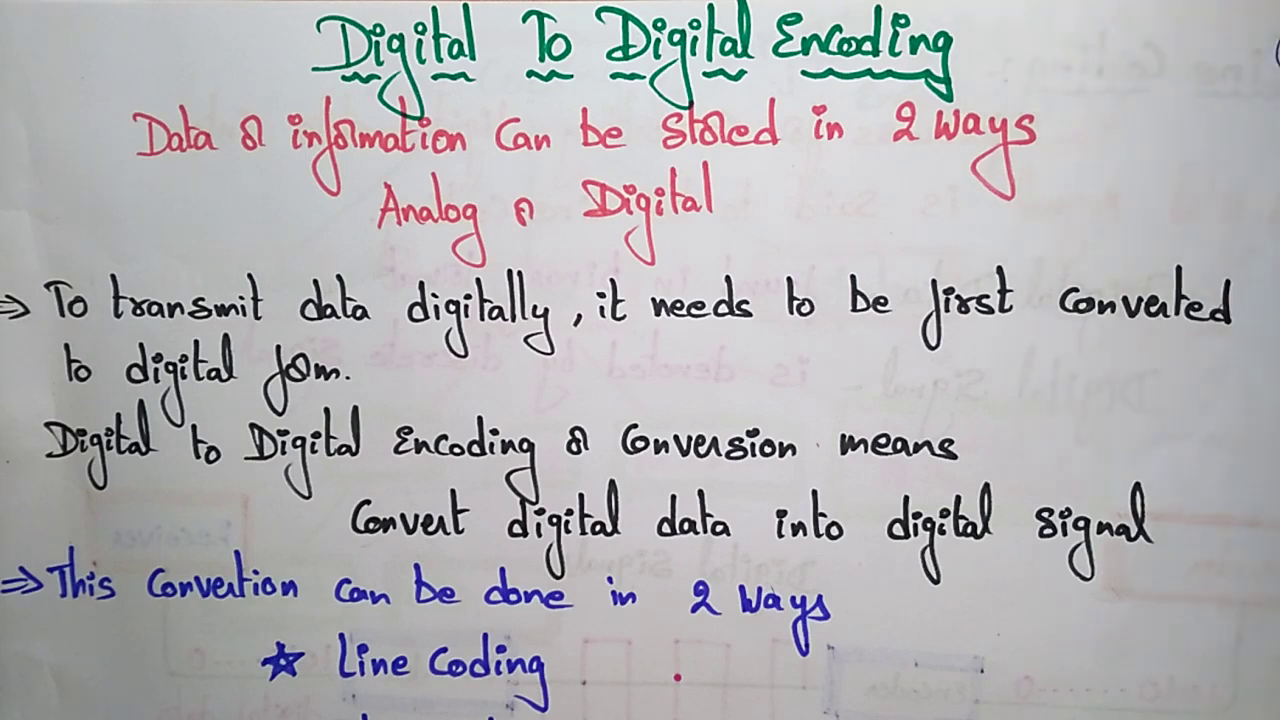 Digital To Digital Encoding
Data or information can be stored in 2 ways
Analog or Digital
⇒ To transmit data digitally, it needs to be first converted
to digital form.
Digital to Digital Encoding or Conversion means
Convert digital data into digital signal
⇒ This Convertion can be done in 2 ways
☆ Line Coding